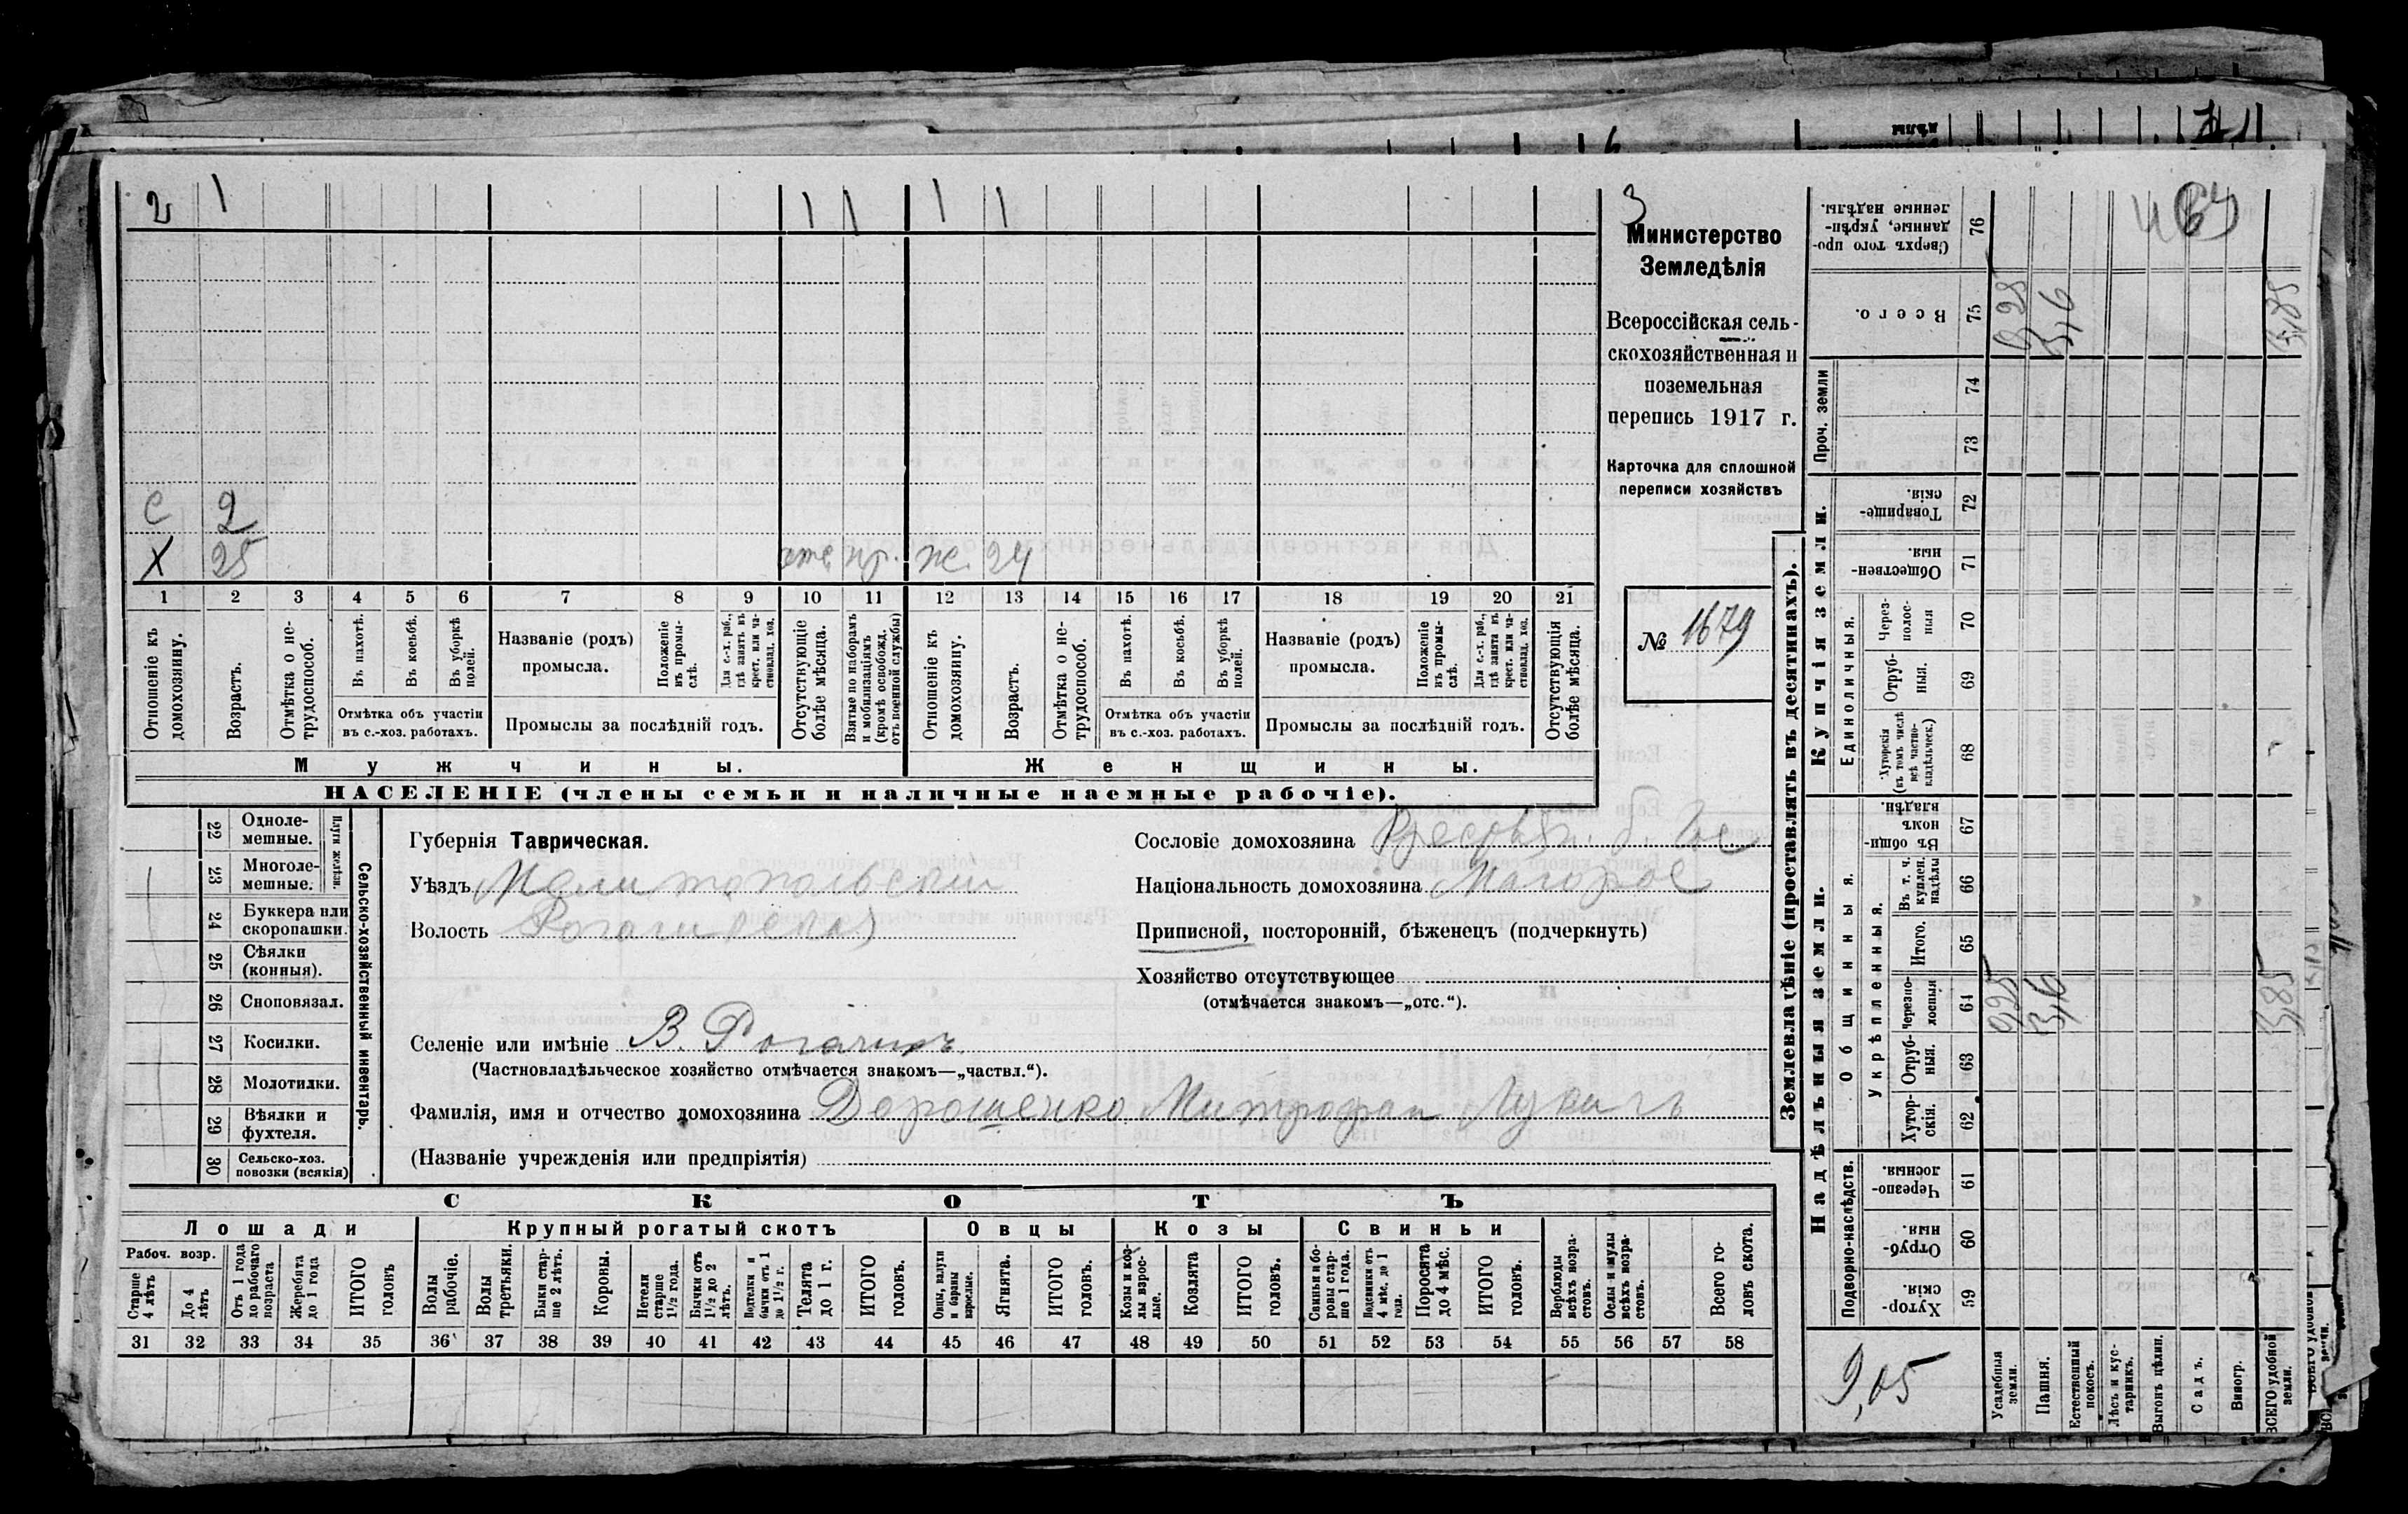 2 1 1 1 1 1
С 2
Х 25 отс. пр. ж. 24
1 2 3 4 5 6 7 8 9 10 11 12 13 14 15 16 17 18 19 20 21
Отношеніе къ домохозяину.
Возрастъ.
Отмѣтка о нетрудоспособ.
Въ пахотѣ.
Въ косьбѣ.
Въ уборкѣ полей.
Отмѣтка объ участіи
въ с.-хоз. работахъ.
Названіе (родъ)
промысла.
Положеніе въ промыслѣ.
Для с.-х. раб., гдѣ занятъ въ крест. или частновлад. хоз.
Промыслы за послѣдній годъ.
Отсутствующіе болѣе мѣсяца.
Взятые по наборамъ и мобилизаціямъ (кромѣ освобожд. отъ военной службы)
Отношеніе къ домохозяину.
Возрастъ.
Отмѣтка о нетрудоспособ.
Въ пахотѣ.
Въ косьбѣ.
Въ уборкѣ полей.
Отмѣтка объ участіи
въ с.-хоз. работахъ.
Названіе (родъ)
промысла.
Положеніе въ промыслѣ.
Для с.-х. раб., гдѣ занята въ крест. или частновлад. хоз.
Промыслы за послѣдній годъ.
Отсутствующія болѣе мѣсяца.
Мужчины. Женщины.
НАСЕЛЕНІЕ (члены семьи и наличные наемные рабочіе).
3
Министерство
Земледѣлія
Всероссійская сель-
скохозяйственная и
поземельная
перепись 1917 г.
Карточка для сплошной
переписи хозяйствъ
№ 1679
22 Однолемешные.
23 Многолемешные.
Плуги желѣзн.
24 Буккера или скоропашки.
25 Сѣялки (конныя).
26 Сноповязал.
27 Косилки.
28 Молотилки.
29 Вѣялки и фухтеля.
30 Сельско-хоз. повозки (всякія)
Сельско-хозяйственный инвентарь.
Губернія Таврическая.
Уѣздъ Мелитопольскій
Волость
Селеніе или имѣніе В. Рогачикъ
(Частновладѣльческое хозяйство отмѣчается знакомъ—„частвл.“).
Фамилія, имя и отчество домохозяина Дорошенко Митрофан Лукичъ
(Названіе учрежденія или предпріятія)
Сословіе домохозяина
Національность домохозяина Малорос
Приписной, посторонній, бѣженецъ (подчеркнуть)
Хозяйство отсутствующее
(отмѣчается знакомъ—„отс.“).
СКОТЪ
Лошади Крупный рогатый скотъ Овцы Козы Свиньи
Рабоч. возр.
Старше 4 лѣтъ
До 4 лѣтъ
Отъ 1 года до рабочаго возраста
Жеребята до 1 года
ИТОГО головъ
Волы рабочіе.
Волы третьяки.
Быки старше 2 лѣтъ.
Коровы.
Нетели старше 1½ года.
Бычки отъ 1½ до 2 лѣтъ.
Подтелки и бычки отъ 1 до 1½ г.
Телята до 1 г.
ИТОГО головъ.
Овцы, валухи и бараны взрослые.
Ягнята.
ИТОГО головъ.
Козы и козлы взрослые.
Козлята
ИТОГО головъ.
Свиньи и боровы старше 1 года.
Подсвинки отъ 4 мѣс. до 1 год.
Поросята до 4 мѣс.
ИТОГО головъ.
Верблюды всѣхъ возрастовъ.
Ослы и мулы всѣхъ возрастовъ.
Всего головъ скота.
31 32 33 34 35 36 37 38 39 40 41 42 43 44 45 46 47 48 49 50 51 52 53 54 55 56 57 58
Землевладѣніе (проставлять въ десятинахъ).
Надѣльныя земли. Купчія земли. Проч. земли
Подворно-наслѣдств.
Общинныя.
Укрѣпленныя.
Единоличныя.
Сверхъ того проданные, укрѣпленные надѣлы. 76
Всего. 75
74
73
Товарищескія. 72
Общественныя. 71
Черезполосныя 70
Отрубныя. 69
Хуторскія (въ томъ числѣ всѣ частновладѣльческ.) 68
Въ общинномъ владѣн. 67
Въ т. ч. куплен. надѣлы 66
Итого. 65
Черезполосныя 64
Отрубныя. 63
Хуторскія. 62
Черезполосныя. 61
Отрубныя. 60
Хуторскія. 59
9,05
Усадебныя земли.
Пашня.
Естественный покосъ.
Лѣсъ и кустарникъ.
Выгонъ цѣлин.
Садъ.
Виногр.
ВСЕГО удобной земли.